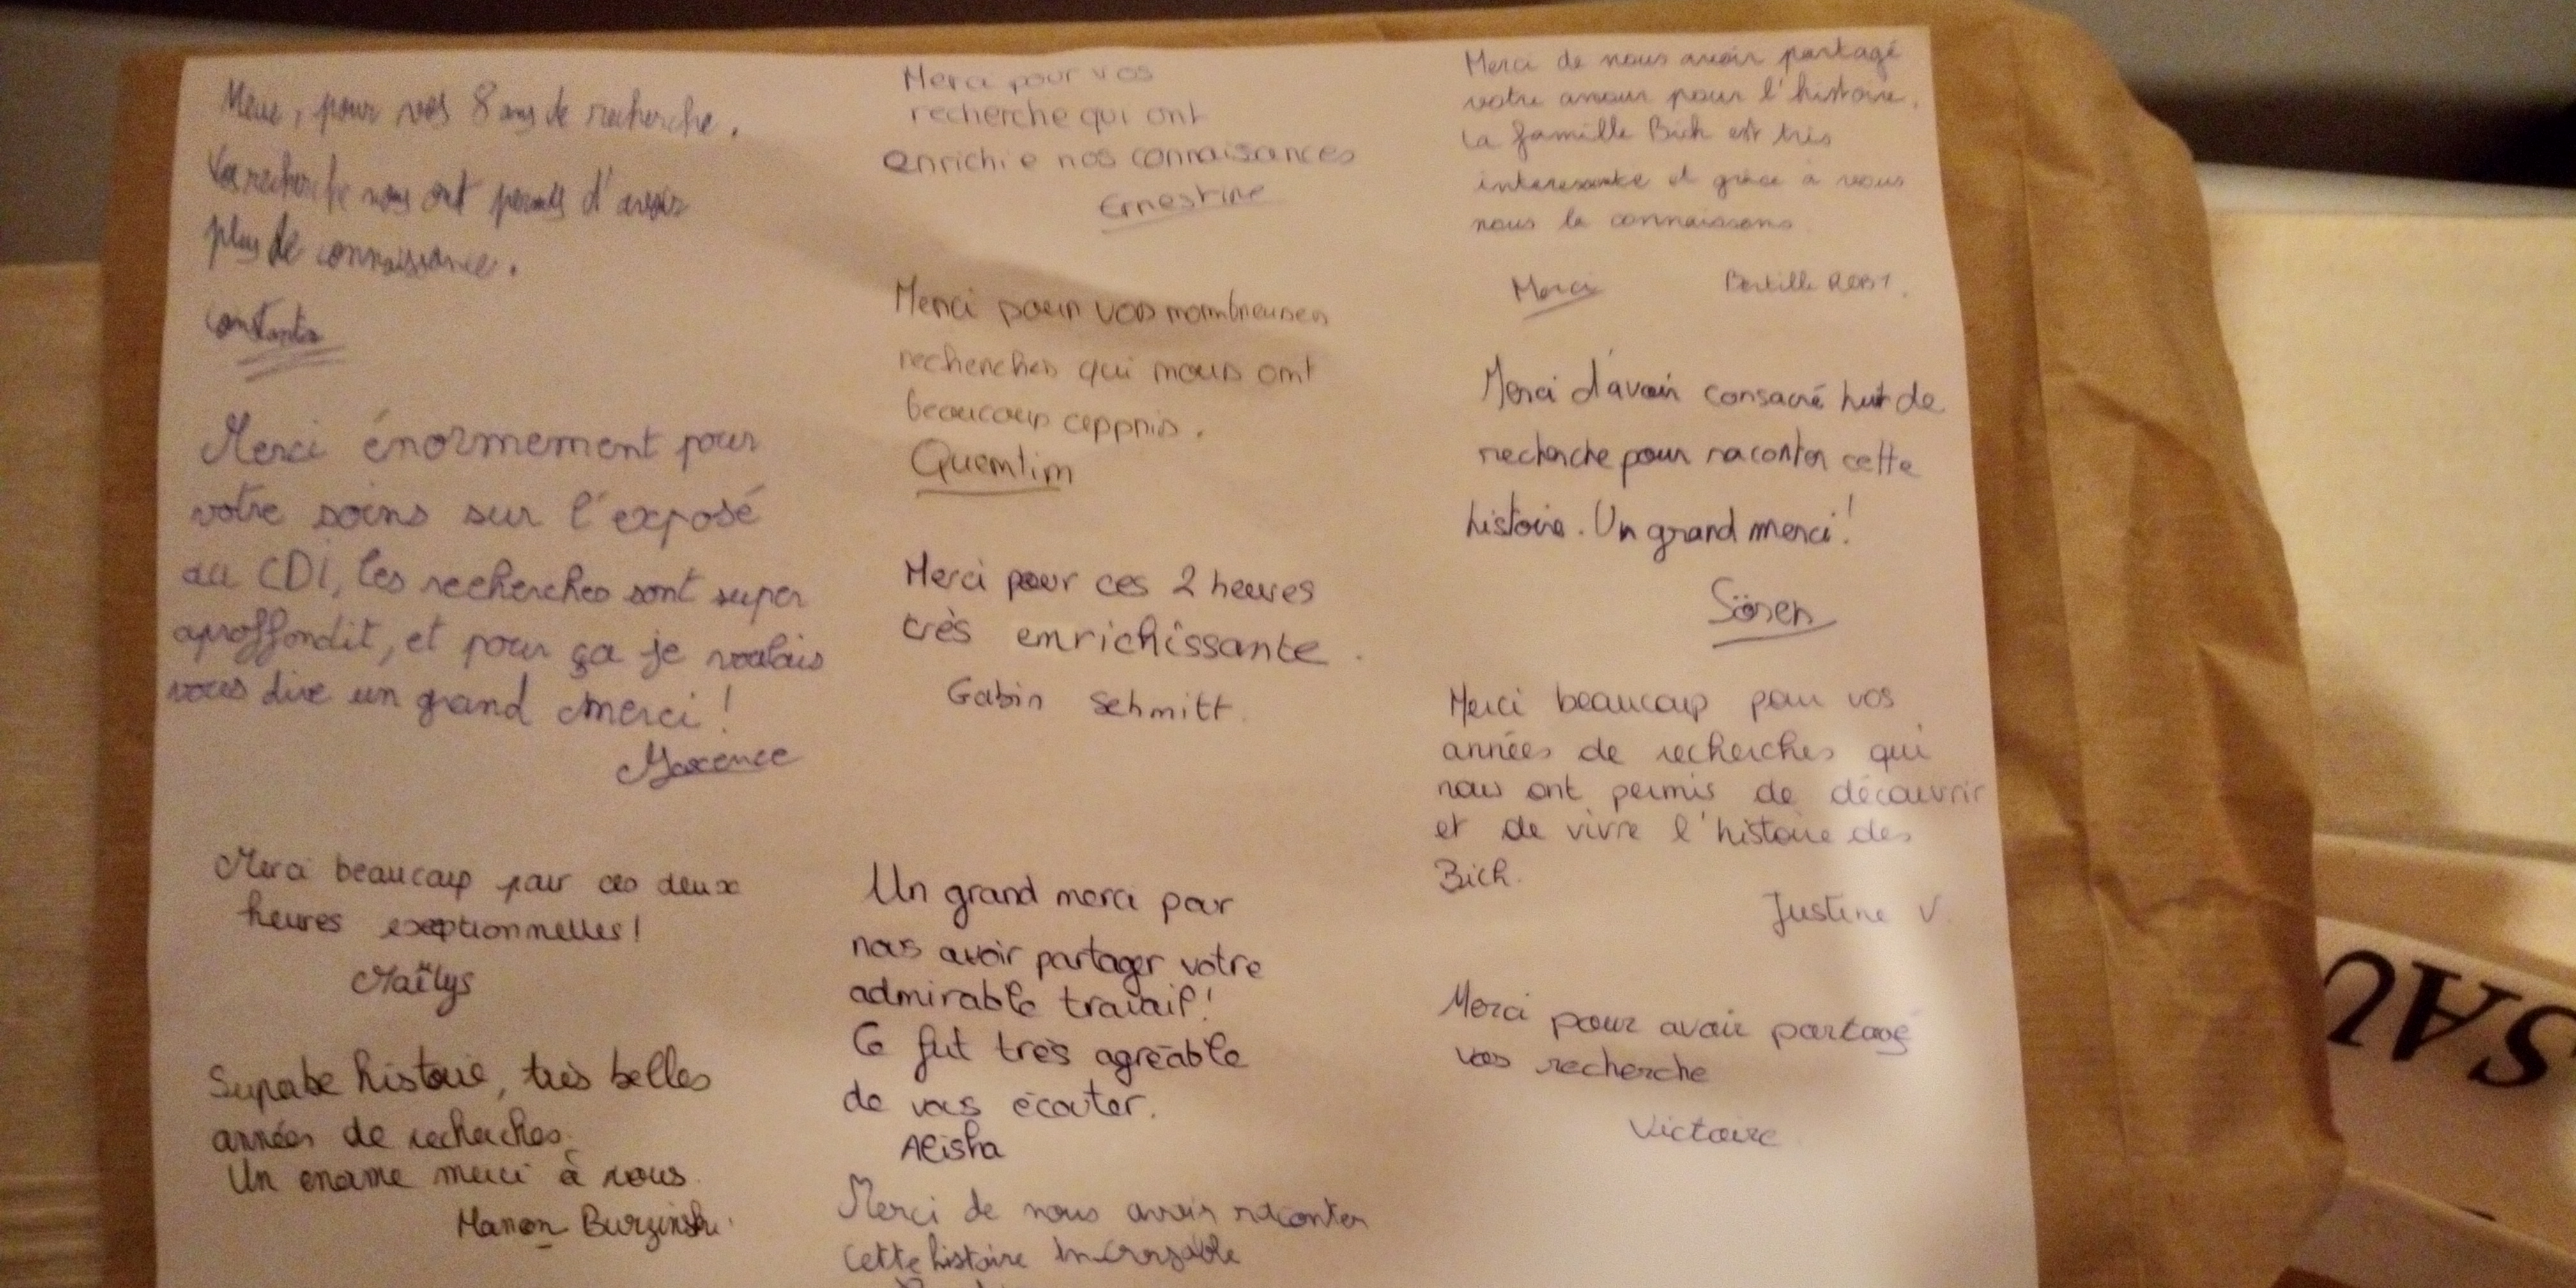 Merci, pour vos 8 ans de recherche.
Vos recherche nous ont permis d'avoir
plus de connaissance.
Merci énormement pour
votre soins sur l'exposé
au CDI, les recherches sont super
aproffondit, et pour ça je voulais
vous dire un grand merci !
Maxence
Merci beaucoup pour ces deux
heures exeptionnelles !
Maïlys
Superbe histoire, très belles
années de recherches.
Un enorme merci à vous.
Manon Burzinski
Merci pour vos
recherche qui ont
enrichie nos connaisances
Ernestine
Merci pour vos nombreuses
recherches qui nous ont
beaucoup appris.
Quentin
Merci pour ces 2 heures
très enrichissante.
Gabin Schmitt.
Un grand merci pour
nous avoir partager votre
admirable travail !
Ce fut très agréable
de vous écouter.
Alisha
Merci de nous avoir raconter
cette histoire incroyable
Merci de nous avoir partagé
votre amour pour l'histoire.
La famille Bich est très
interessante et grâce à vous
nous la connaissons.
Merci Bertille
Merci d'avoir consacré huit de
recherche pour raconter cette
histoire. Un grand merci !
Sören
Merci beaucoup pour vos
années de recherches qui
nous ont permis de découvrir
et de vivre l'histoire des
Bich.
Justine V.
Merci pour avoir partagé
vos recherche
Victoire
SAU